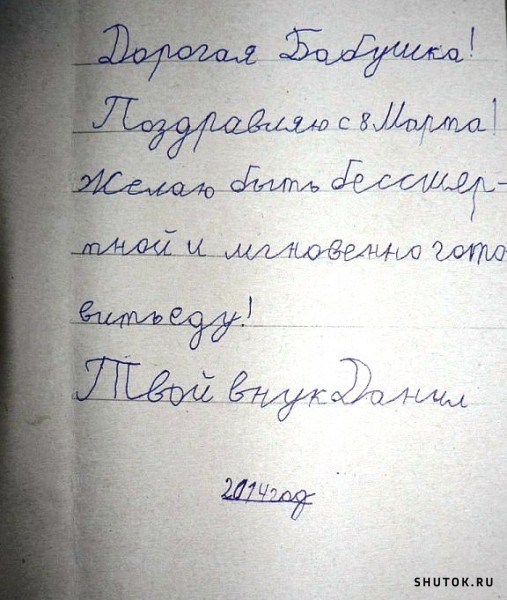 Дорогая Бабушка!
Поздравляю с 8 Марта!
Желаю быть бессмер-
тной и мгновенно гото
вить еду!
Твой внук Данил
2014 год
SHUTOK.RU